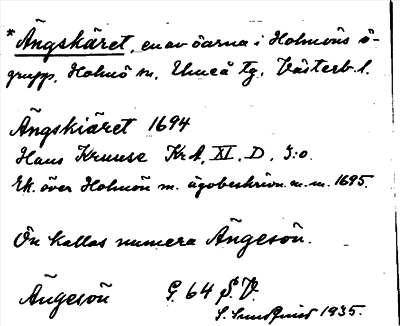 * Ängskäret, en av öarna i Holmöns ö-
grupp, Holmö sn, Umeå tg, Västerb. l.
Ängskiäret 1694
Hans Kruuse KrA, XI, D, 3:o.
Ek. över Holmön m. ägobeskrivn. m.m. 1695.
Ön kallas numera Ängesön.
Ängesön G. 64 S.V.
S. Sundquist 1935.